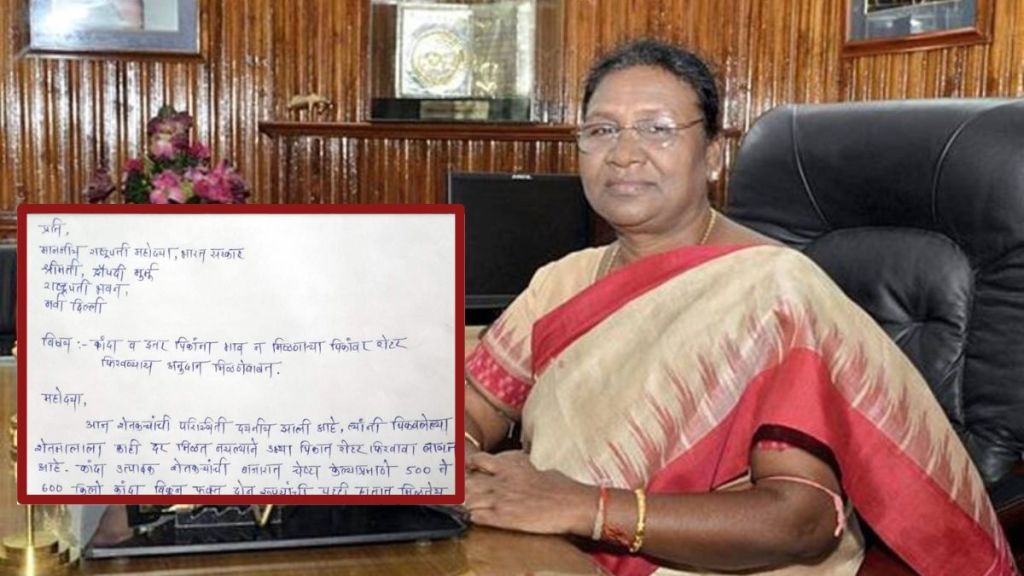 प्रति,
माननीय राष्ट्रपती महोदया, भारत सरकार
श्रीमती, द्रौपदी मुर्मु
राष्ट्रपती भवन,
नवी दिल्ली
विषय :- कांदा व इतर पिकांना भाव न मिळणाऱ्या पिकांवर रोटर
फिरवण्यास अनुदान मिळणेबाबत.
महोदया,
आज शेतकऱ्यांची परिस्थिती दयनीय झाली आहे, त्यांनी पिकवलेल्या
शेतमालाला काही दर मिळत नसल्याने उभ्या पिकात रोटर फिरवावा लागत
आहे. कांदा उत्पादक शेतकऱ्यांनी केल्याप्रमाणे 500 ते
600 किलो कांदा विकून फक्त दोन रूपयांची पट्टी हातात मिळतेय